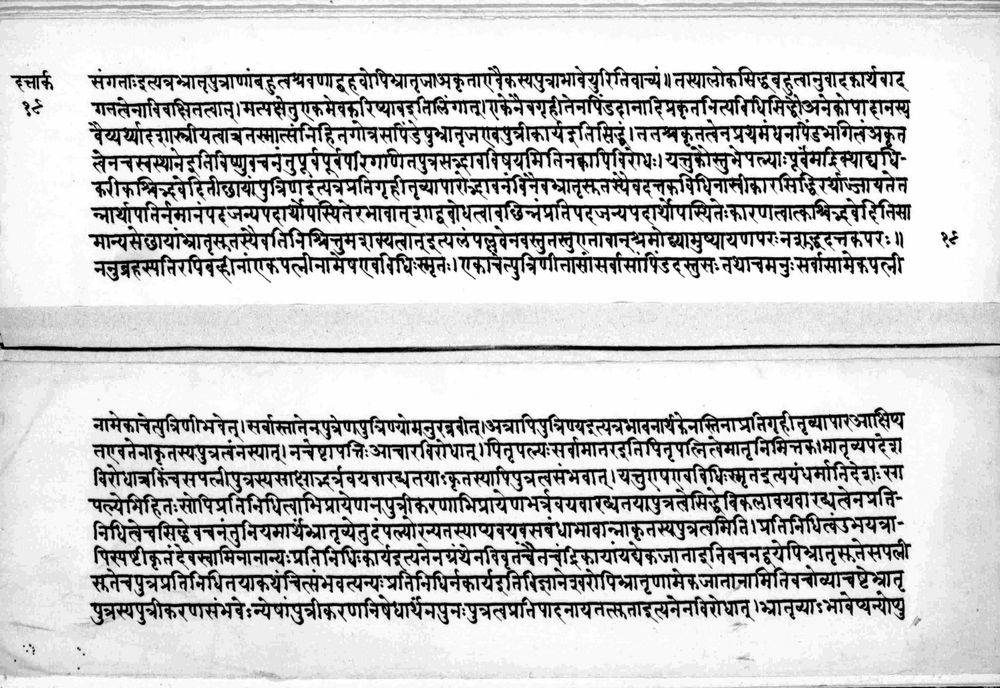 दत्तार्क
१९
संगताःइत्यत्रभ्रातृपुत्राणांबहुत्वश्रवणाद्बहवोपिभ्रातृजाअकृताएवैकस्यपुत्राभावेयुरितिवाच्यं॥तस्यालोकसिद्धबहुत्वानुवादकार्थवाद
गतत्वेनाविवक्षितत्वात्।मत्पक्षेतुएकमेवकरिष्यावइतिलिंगात्।एकेनैवगृहीतेनपिंडदानादिप्रकृतनित्यविधिसिद्धौअनेकोपादानस्य
वैयर्थ्यादशास्त्रीयत्वाच्चतस्मात्संनिहितगोत्रसपिंडेषुभ्रातृजएवपुत्रीकार्यइतिसिद्धं।ततश्चकृतत्वेनप्रथमंधनपिंडभागित्वंअकृत
त्वेनचस्वस्थानेइतिविष्णुवचनंतुपूर्वपूर्वपरिगणितपुत्रसद्भावविषयमितिनकापिविरोधः।यत्तुकौस्तुभेपत्न्याःपूर्वमविक्याद्यधि-
करीकश्चिद्भवेदितीछायापुत्रिणइत्यत्रप्रतिगृहीतृव्यापारोद्भावनंविनैवभ्रातृसुतस्यैवदत्तकविधिनास्वीकारसिद्धिरर्थाज्जायतेत
न्नार्थापतिर्नमानंपदजन्यपदार्थोपस्थितेरभावात्शाब्दबोधत्वावछिन्नंप्रतिपदजन्यपदार्थोपस्थितेःकारणत्वात्कश्चिद्भवेदितिसा
मान्यसेछायांभ्रातृसुतस्यैवतिनिश्चितुमशक्यत्वात्इत्यलंपल्लवेनवस्तुतस्तुएतावान्श्रमोद्व्यामुष्यायणपरःनशुद्धदत्तकपरः॥
१९
ननुब्रहस्पतिरपिबव्हीनांएकपत्नीनामेषएवविधिःस्मृतः।एकाचेत्पुत्रिणीतासांसर्वासांपिंडदस्तुसःतथाचमनुःसर्वासामेकपत्नी
नामेकाचेत्पुत्रिणीभवेत्।सर्वास्तास्तेनपुत्रेणपुत्रिण्योमनुरब्रवीत्।अत्रापिपुत्रिण्यइत्यत्रभावनार्थकेनस्तिनाप्रतिगृहीतृव्यापारआक्षिप्य
तएवतेनाकृतस्यपुत्रत्वंनस्यात्।नचेष्टापत्तिःआचारविरोधात्।पितृपत्न्यःसर्वामातरइतिपितृपत्नित्वेमातृनिमित्तकामातृव्यपदेश
विरोधाच्चकिंचसपत्नीपुत्रस्यसाक्षाद्भर्त्रवयवारब्धतयाऽकृतस्यापिपुत्रत्वसंभवात्।यत्तुएषएवविधिःस्मृतइत्ययंधर्मातिदेशःसा
पत्न्येमिहितःसोपिप्रतिनिधित्वाभिप्रायेणनपुत्रीकरणाभिप्रायेणभर्त्रवयवारब्धतयापुत्रत्वेसिद्धेविकलावयवारब्धत्वेनप्रति-
निधित्वेचसिद्धेवचनंतुनियमार्थंभ्रातृव्येतुदंपत्योरन्यतरस्याप्यवयवसंबंधाभावान्नाकृतस्यपुत्रत्वमिति।प्रतिनिधित्वंउभयत्रा-
पिस्पष्टीकृतंदेवस्वामिनानान्यःप्रतिनिधिःकार्यइत्यनेनग्रंथेनविवृतंचैतच्चंद्रिकायांयद्येकजाताइतिवचनद्वयेपिभ्रातृसुतेसपत्नी
सुतेचपुत्रप्रतिनिधितयाकथंचित्संभवत्यन्यःप्रतिनिधिर्नकार्यइतिविज्ञानेश्वरोपिभ्रातृणामेकजातानामितिवचोव्याचष्टेभ्रातृ
पुत्रस्यपुत्रीकरणसंभवेऽन्येषांपुत्रीकरणनिषेधार्थंनपुनःपुत्रत्वप्रतिपादनायतत्सुताइत्यनेनविरोधात्।भ्रातृव्याऽभावेप्यन्योपु